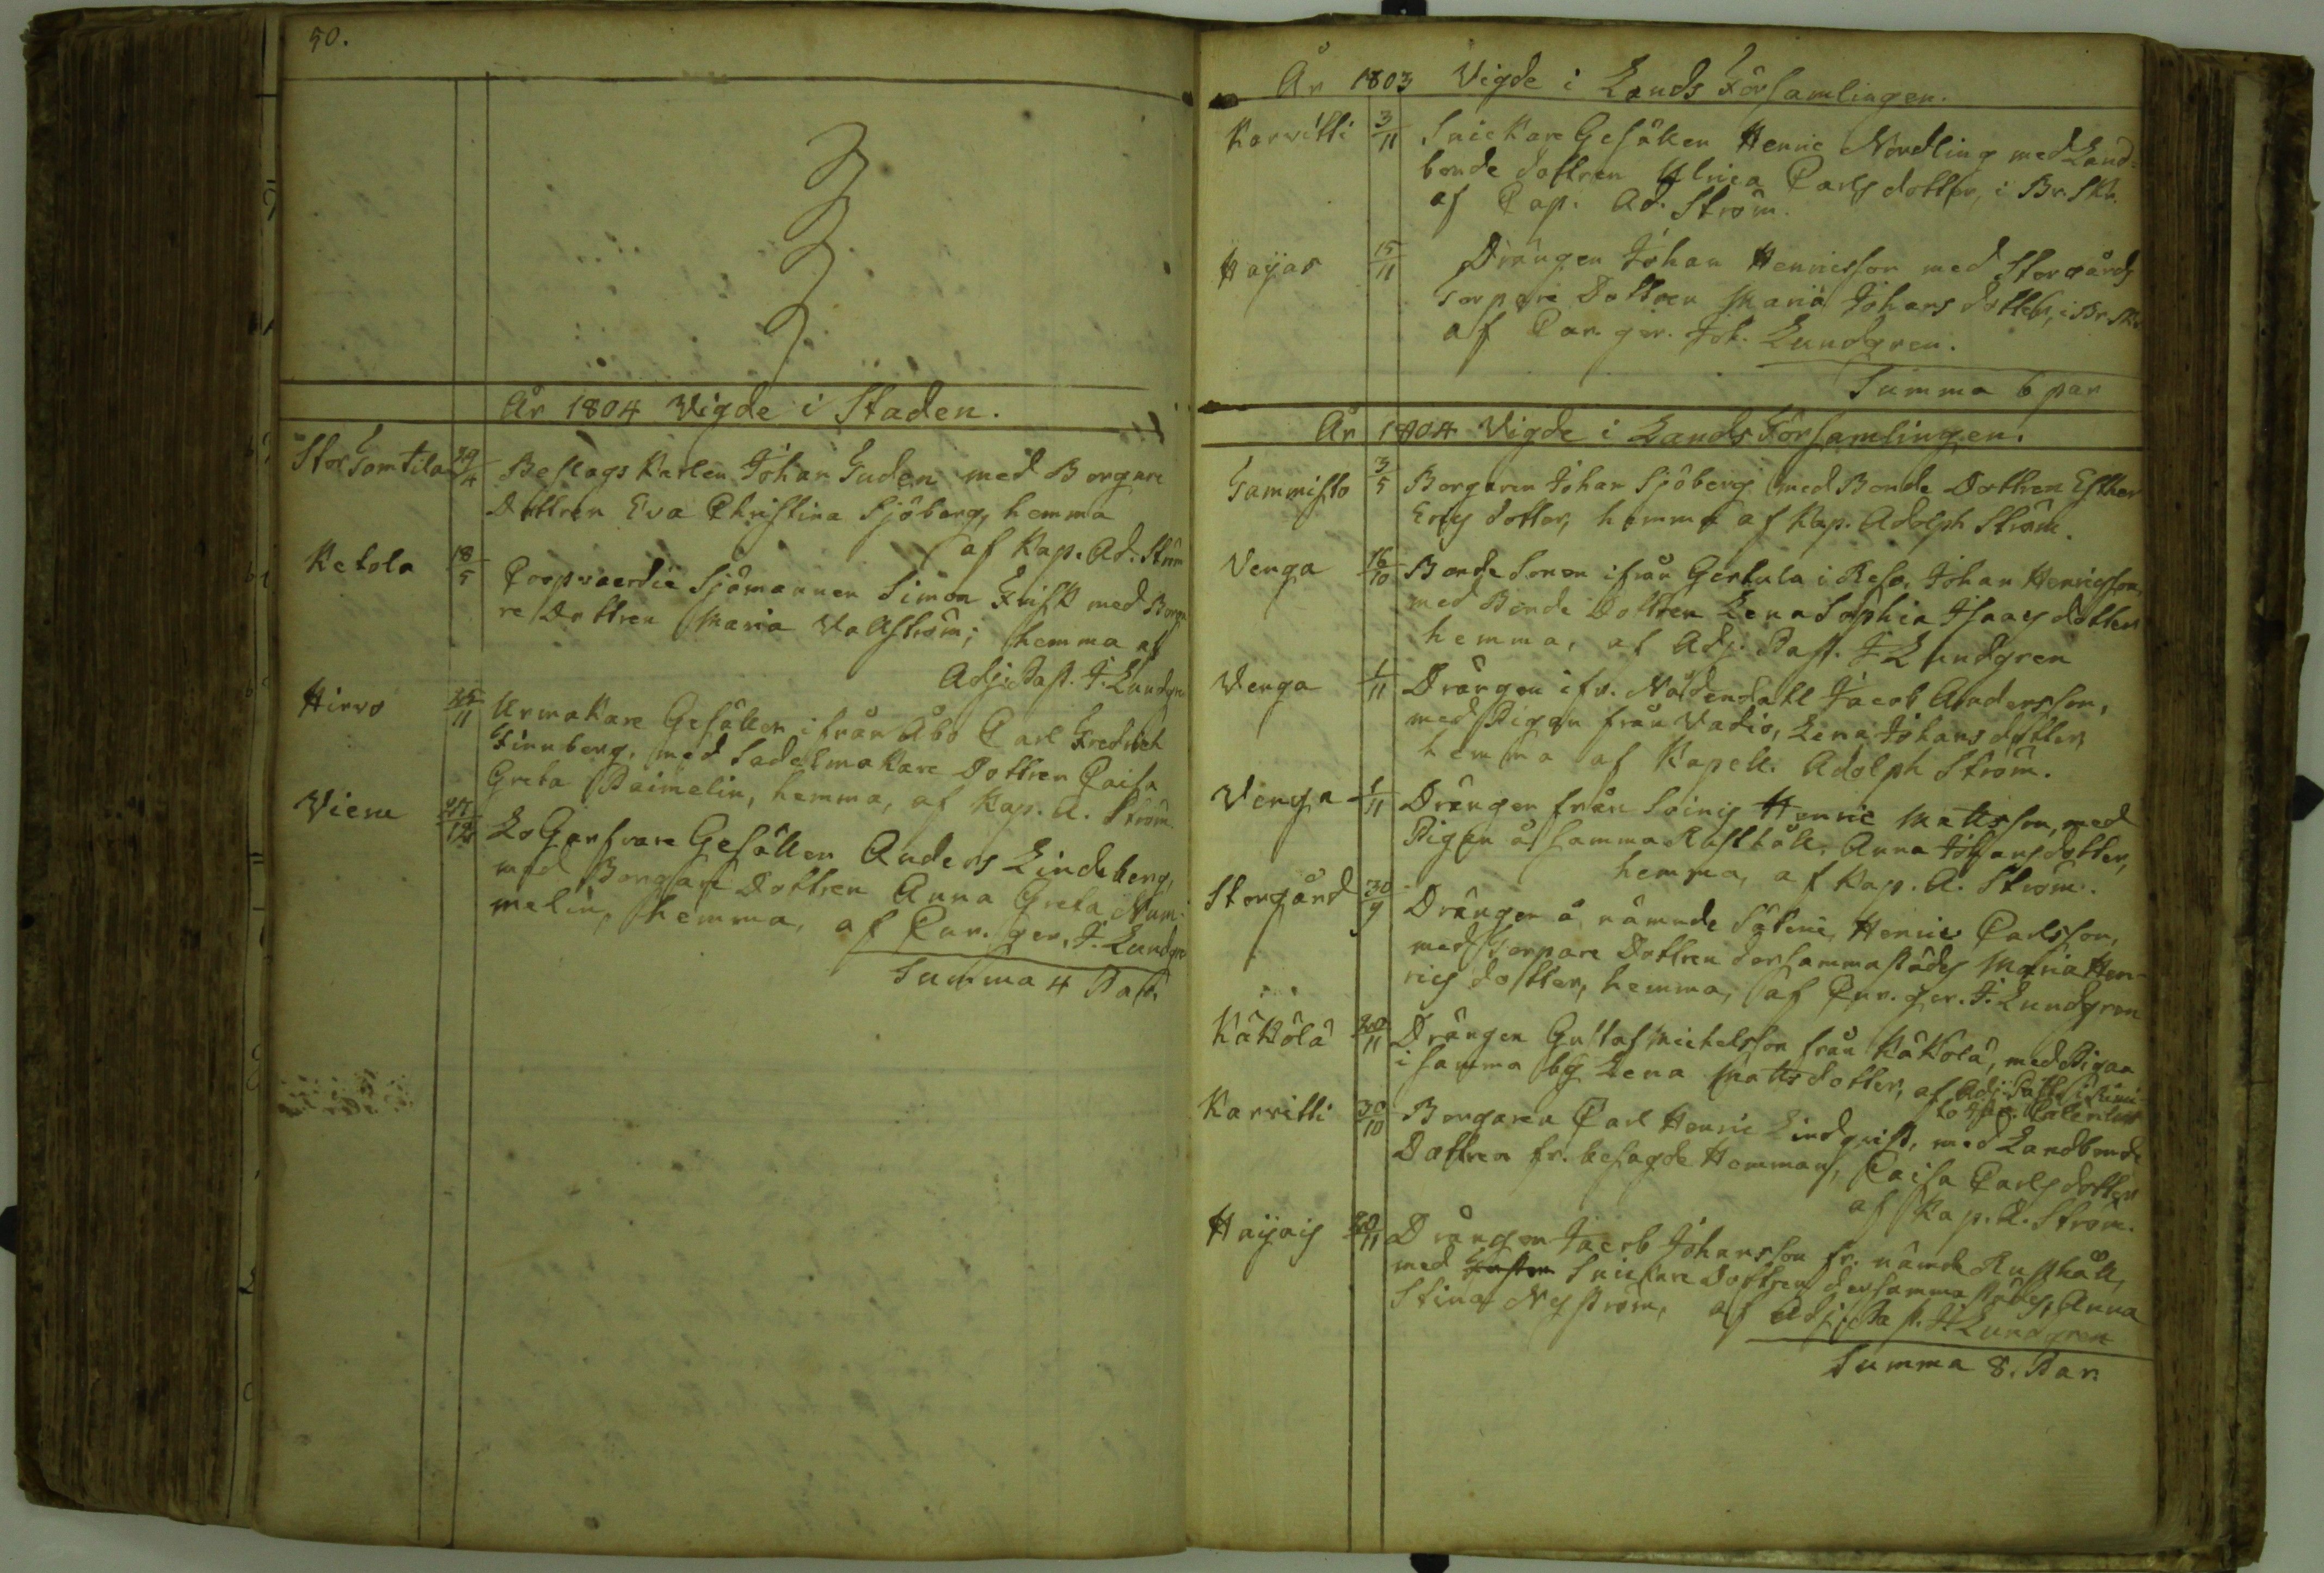 50.
År 1804 Vigde i Staden.
29/4 Beslags Karlen Johan Guden med Borgare
Dottren Eva Christina Sjöberg, hemma
af Kap. Ad. Ström
Ketola 18/5 Coopvaerdie Sjömannen Simon Frisk med Borga
re Dottren Maria Vallström; hemma af
Adj. Past. J. Lundgren
Hirvo 25/11 Urmakare Gesällen ifrån Åbo Carl Fredrich
Finnberg, med Sadelmakare Dottren Caisa
Greta Paimelin, hemma, af Kap. A. Ström
Viene Logarfvare Gesällen Anders Lindeberg,
med Borgare Dottren Anna Greta Num-
melin, hemma, af Cur. ger. J. Lundgren
Summa 4 Par.
År 1803 Vigde i Lands Församlingen.
Karvitti 3/11 Snickare Gesällen Henric Nordling med Land-
bonde dottren Ulrica Carlsdotter, i Br. Skr.
af Cap. Ad. Ström.
Hayas 15/11 Drängen Johan Henricsson med Storgårds
Torpare Dottren Maria Johansdotter, i Br. Skr
af Cur. ger. Joh. Lundgren.
Summa 6 par
År 1804 Vigde i Lands Församlingen.
Tammisto 3/5 Borgaren Johan Sjöberg med Bonde Dottren Esther
Ericsdotter, hemma af Kap. Adolph Ström.
Venga 16/10 Bonde Sonen ifrån Gertula i Reso, Johan Henricsson,
med Bonde Dottren Lena Sophia Isaacsdotter
hemma, af Adj. Past. J Lundgren
Venga 1/11 Drängen ifr. Nådendahl Jacob Andersson,
med Pigan från Vadio, Lena Johansdotter,
hemma af Kapell. Adolph Ström.
Venga 1/11 Drängen från Soinis Henric Matsson, med
Pigan å samma Rusthåll, Anna Johansdotter,
hemma, af Kap. A. Ström.
Storgård 30/9 Drängen å nämnde Säteri, Henric Carlsson,
med Torpare Dottren dersammastädes Maria Hen-
ricsdotter, hemma, af Cur. ger. J. Lundgren
Käkölä 20/11 Drängen Gustaf Michelsson från Käkölä, med Pigan
i samma by Lena Matsdotter, af Adj. Past.
Karvitti 30/10 Borgaren Carl Henric Lindqvist, med Landbonde
Dottren fr. besagde Hemman, Caisa Carlsdotter
af Kap. A. Ström.
Hayais 20/11 Drängen Jacob Johansson fr. nämde Rusthåll,
med Snickare Dottren dersammastädes, Anna
Stina Nyström, af Adj. Past. J. Lundgren
Summa 8. Par.